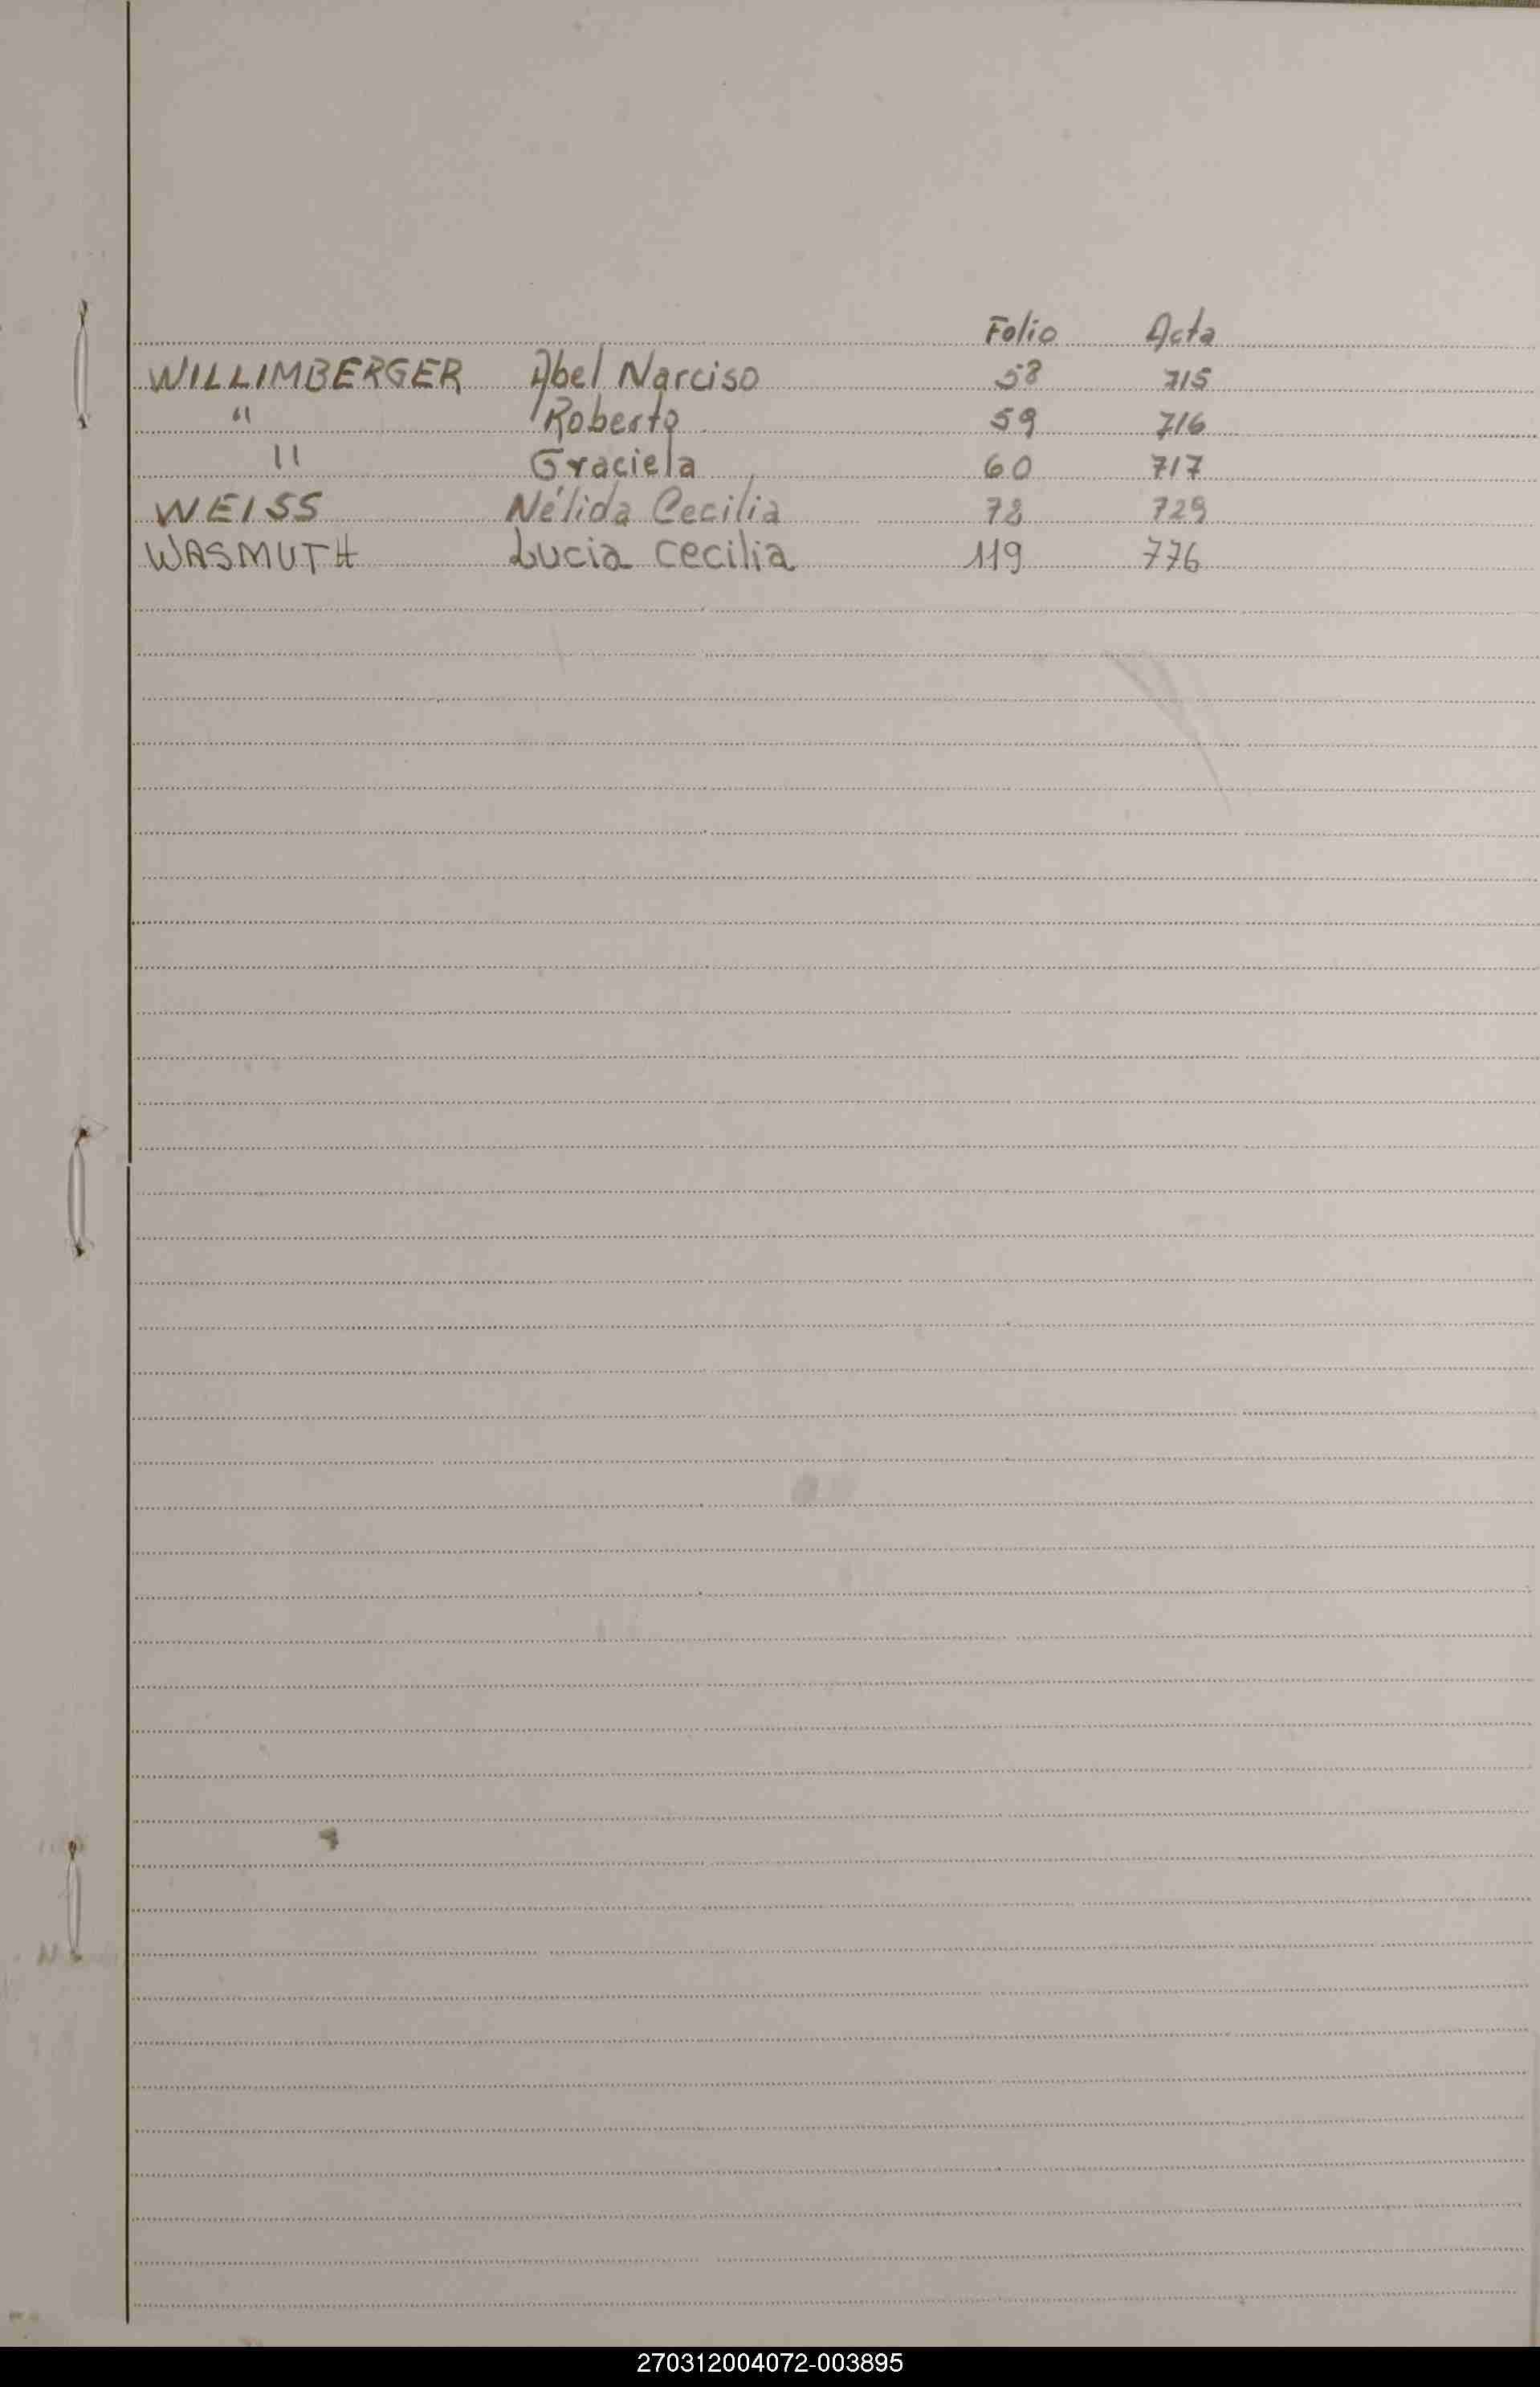 Folio Acta
WILLIMBERGER Abel Narciso 58 715
" Roberto 59 716
" Graciela 60 717
WEISS Nélida Cecilia 72 729
WASMUTH Lucia Cecilia 119 776
270312004072-003895